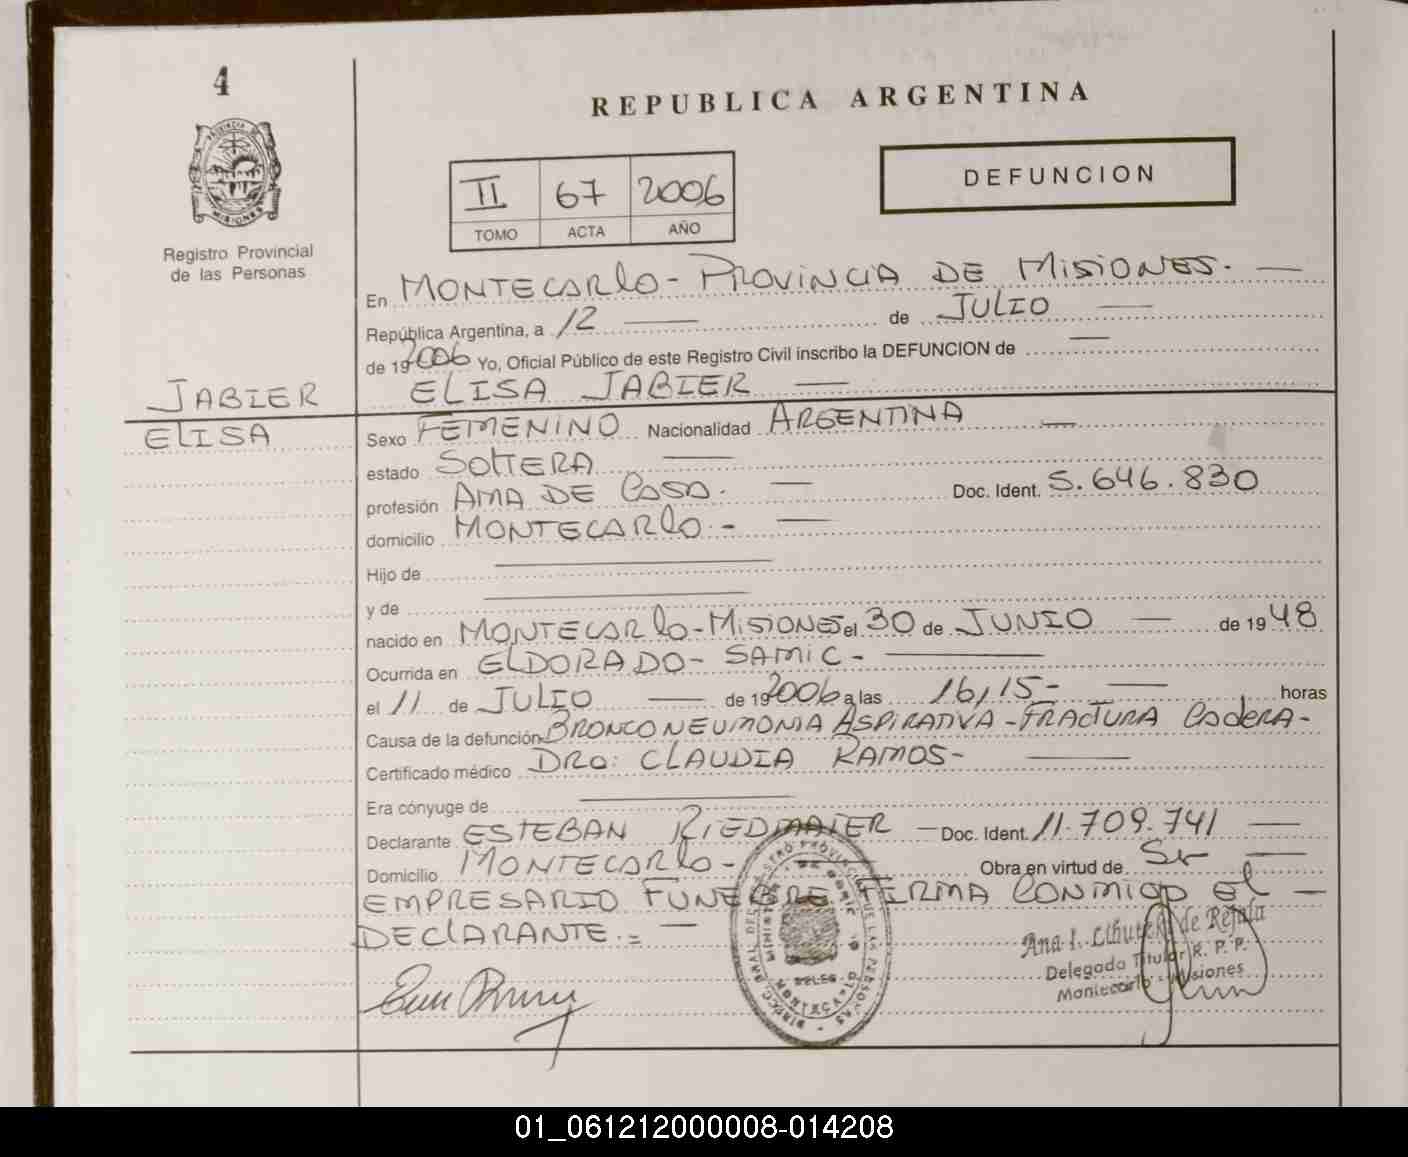 4
REPUBLICA ARGENTINA
PROVINCIA DE
MISIONES
Registro Provincial
de las Personas
DEFUNCION
II 67 2006
TOMO ACTA AÑO
En MONTECARlO - PROVINCIA DE MISIONES. —
República Argentina, a 12 — de JULIO —
de 19 2006 Yo, Oficial Público de este Registro Civil inscribo la DEFUNCION de —
JABIER
ELISA JABIER —
ELISA
Sexo FEMENINO Nacionalidad ARGENTINA —
estado SOLTERA —
profesión AMA DE CASA. — Doc. Ident. 5.646.830
domicilio MONTECARlO - —
Hijo de —
y de —
nacido en MONTECARlO - MISIONES el 30 de JUNIO — de 19 48
Ocurrida en ELDORADO - SAMIC - —
el 11 de JULIO — de 19 2006 a las 16,15 - — horas
Causa de la defunción BRONCONEUMONIA ASPIRATIVA - FRACTURA CADERA -
Certificado médico DRa: CLAUDIA RAMOS - —
Era cónyuge de —
Declarante ESTEBAN RIEDMAIER — Doc. Ident. 11.709.741 —
Domicilio MONTECARlO - Obra en virtud de Sr —
EMPRESARIO FUNEBRE FIRMA CONMIGO El —
DEClARANTE. = —
Ana I. de Rejala
Delegada Titular R. P. P.
Montecarlo - Misiones
01_061212000008-014208